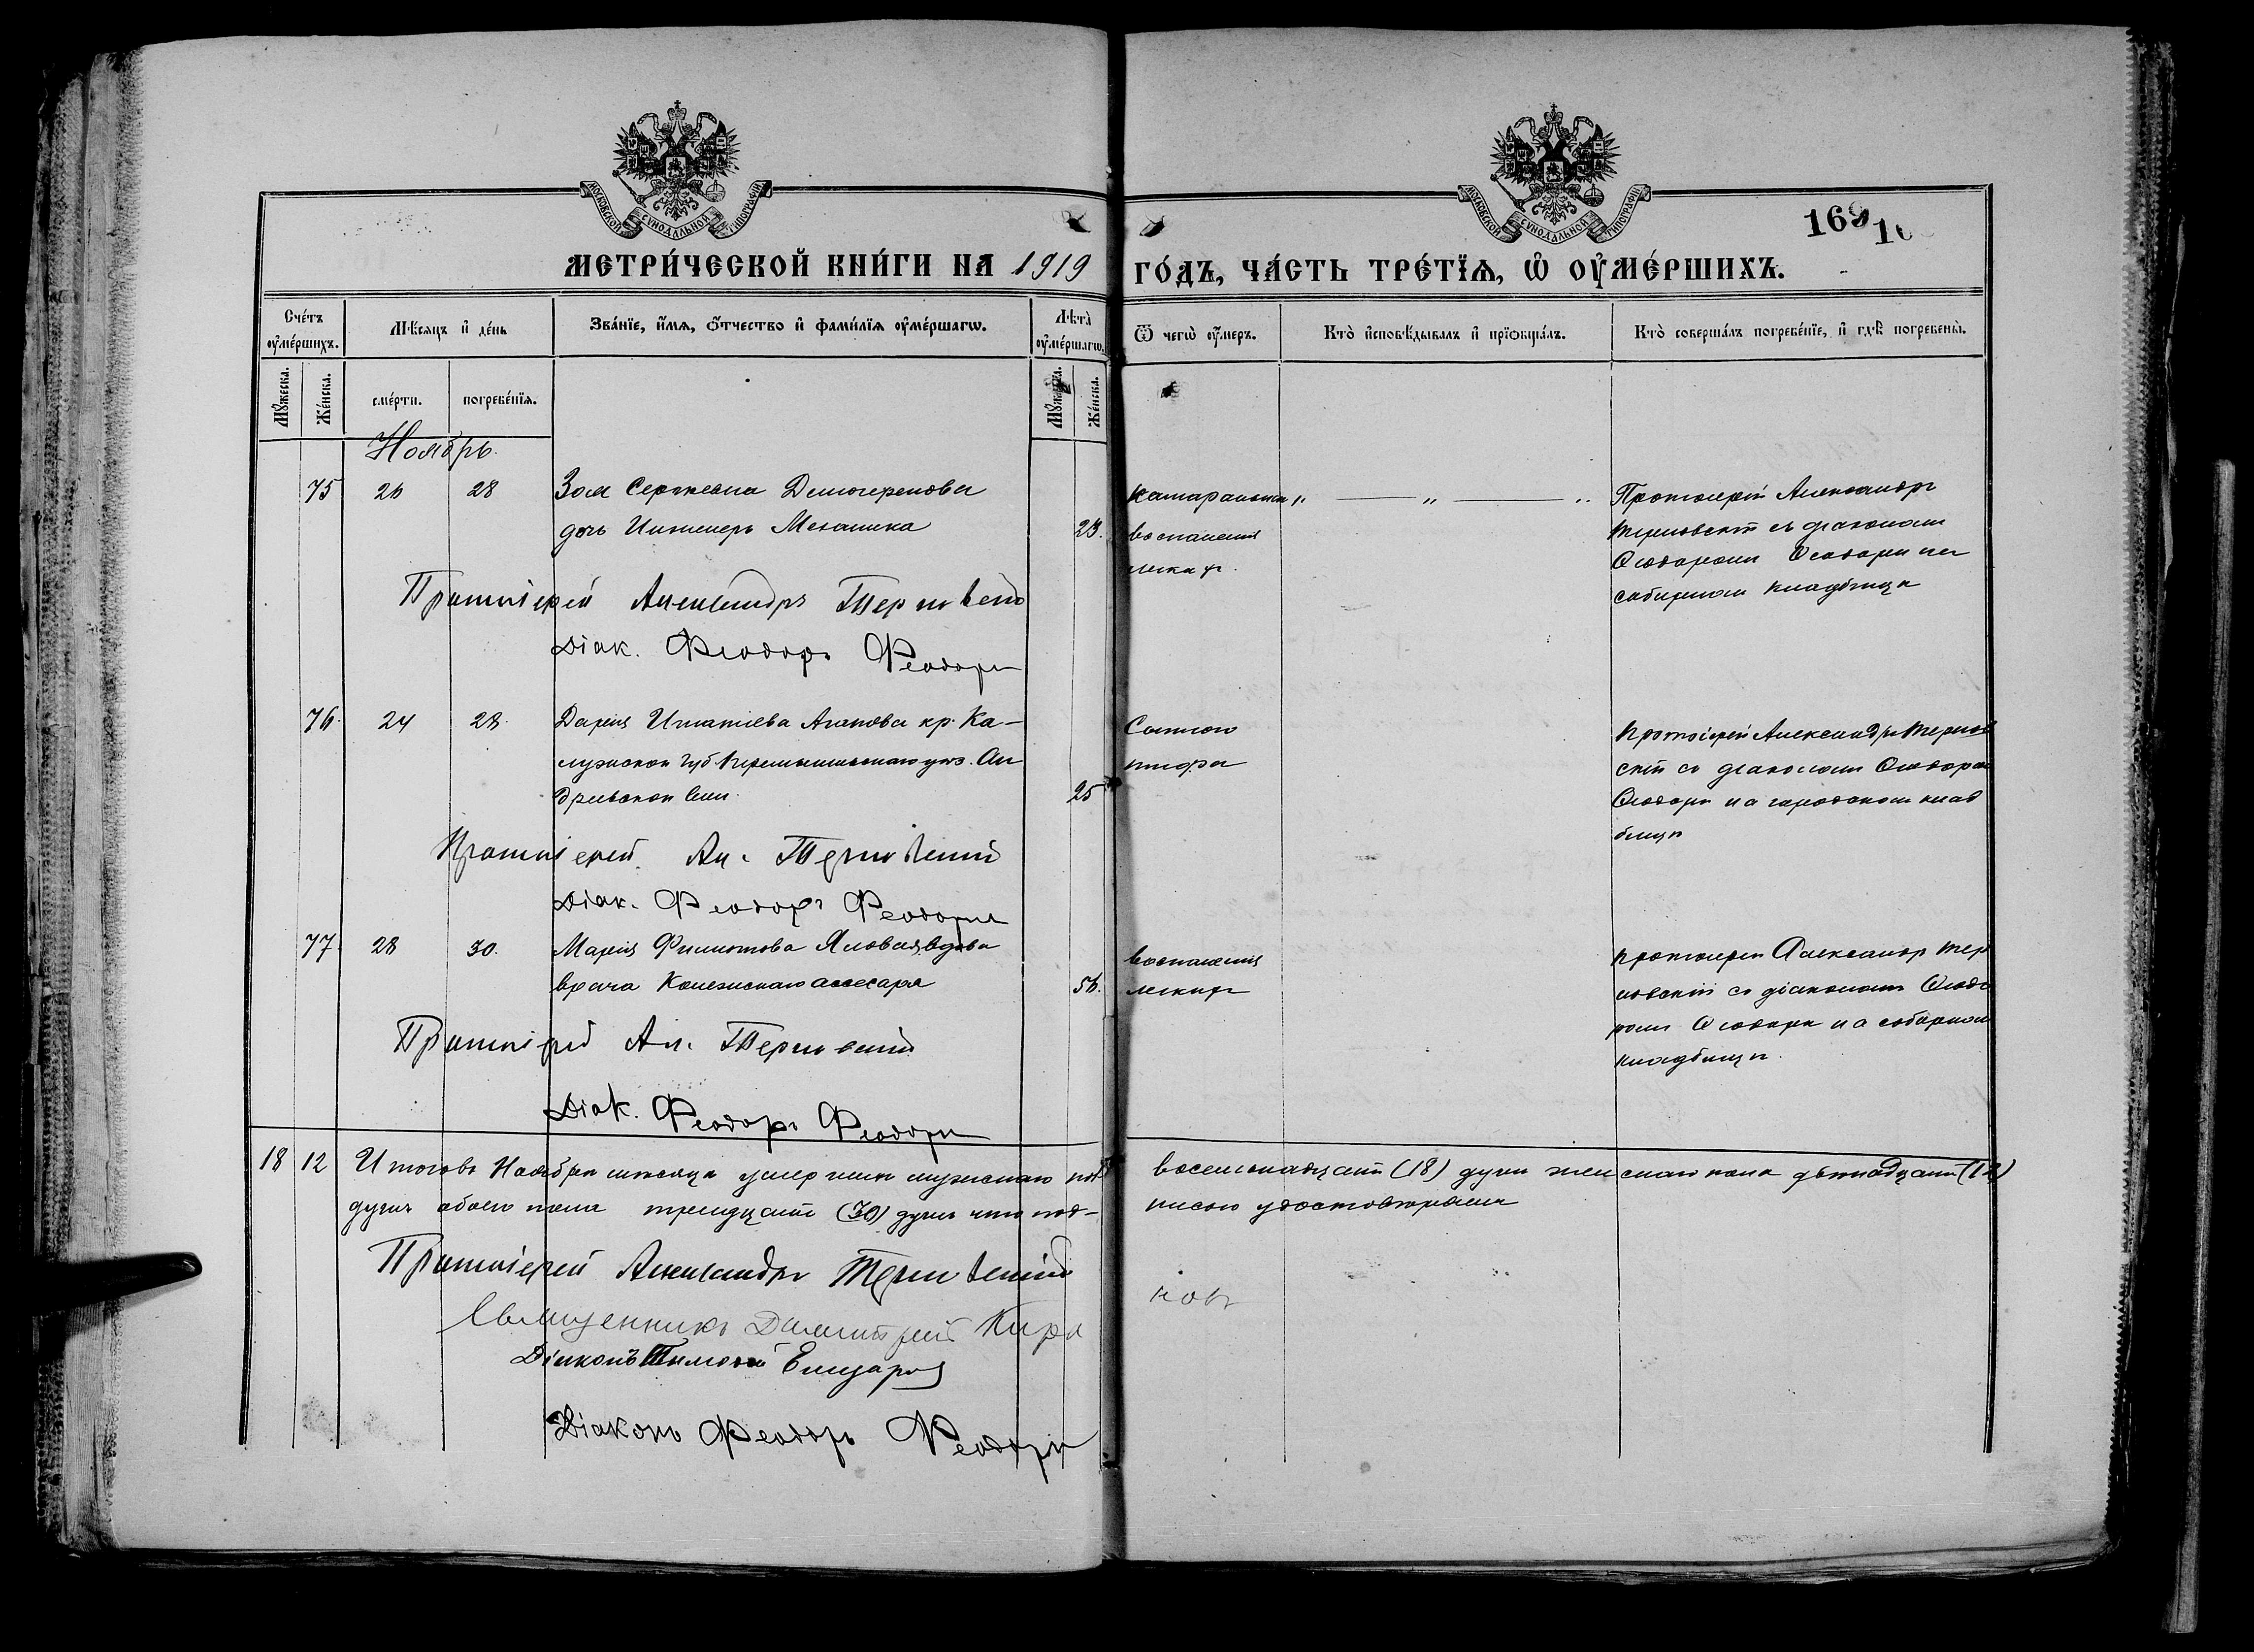 МОСКОВСКОЙ СУНОДАЛЬНОЙ ТИПОГРАФІИ
МОСКОВСКОЙ СУНОДАЛЬНОЙ ТИПОГРАФІИ
169
МЕТРИ́ЧЕСКОЙ КНИ́ГИ НА 1919 ГО́ДЪ, ЧА́СТЬ ТРЕ́ТЇѦ, Ѡ ОУМЕ́РШИХЪ.
Сче́тъ оуме́ршихъ.
Мѣ́сяцъ и де́нь
Зва́нїе, и́мѧ, ѻ́тчество и фами́лїѧ оуме́ршагѡ.
Лѣта̀ оуме́ршагѡ.
Ѿ чегѡ̀ оу́меръ.
Кто̀ исповѣ́дывалъ и прїѡбща́лъ.
Кто̀ соверша́лъ погребе́нїе, и гдѣ̀ погребены̀.
Мꙋ́жеска.
Же́нска.
сме́рти.
погребе́нїѧ.
Мꙋ́жеска.
Же́нска.
Ноябрь.
75 26 28 Зоя Сергѣевна
дочь Инженеръ Механика 23.
катаральнаго
воспаленія
легкихъ.
Протоіерей Александръ
Терновскій съ діакономъ
Ѳеодоромъ Ѳеодори на
соборномъ кладбищѣ
Протоіерей Александръ Терновскій
Діак. Феодоръ Феодори
76. 24 28. Дарія Игнатіева Агапова кр. Ка-
лужской губ. Перемышльскаго уѣз. Ан
дреевской вол. 25
Сыпного
тифа
Протоіерей Александръ Тернов
скій съ діакономъ Ѳеодоромъ
Ѳеодори на городскомъ клад
бищѣ
Протоіерей Ал. Терновскій
Діак. Феодоръ Феодори
77. 28 30. Марія Филипова Яловая, вдова
врача Колежскаго ассесора 56.
воспаленія
легкихъ
Протоіерей Александръ Тер
новскій съ діакономъ Ѳеодо
ромъ Ѳеодори на соборномъ
кладбищѣ.
Протоіерей Ал. Терновскій
Діак. Феодоръ Феодори
18 12 Итого въ Ноябрѣ мѣсяцѣ умершихъ мужскаго пола восемьнадцать (18) душъ женскаго пола двѣнадцать (12)
душъ обоего пола тридцать (30) душъ что под- писью удостовѣряемъ
Протоіерей Александръ Терновскій
Священникъ Димитрій Кира ковъ
Діаконъ Тимофей
Діаконъ Феодоръ Феодори